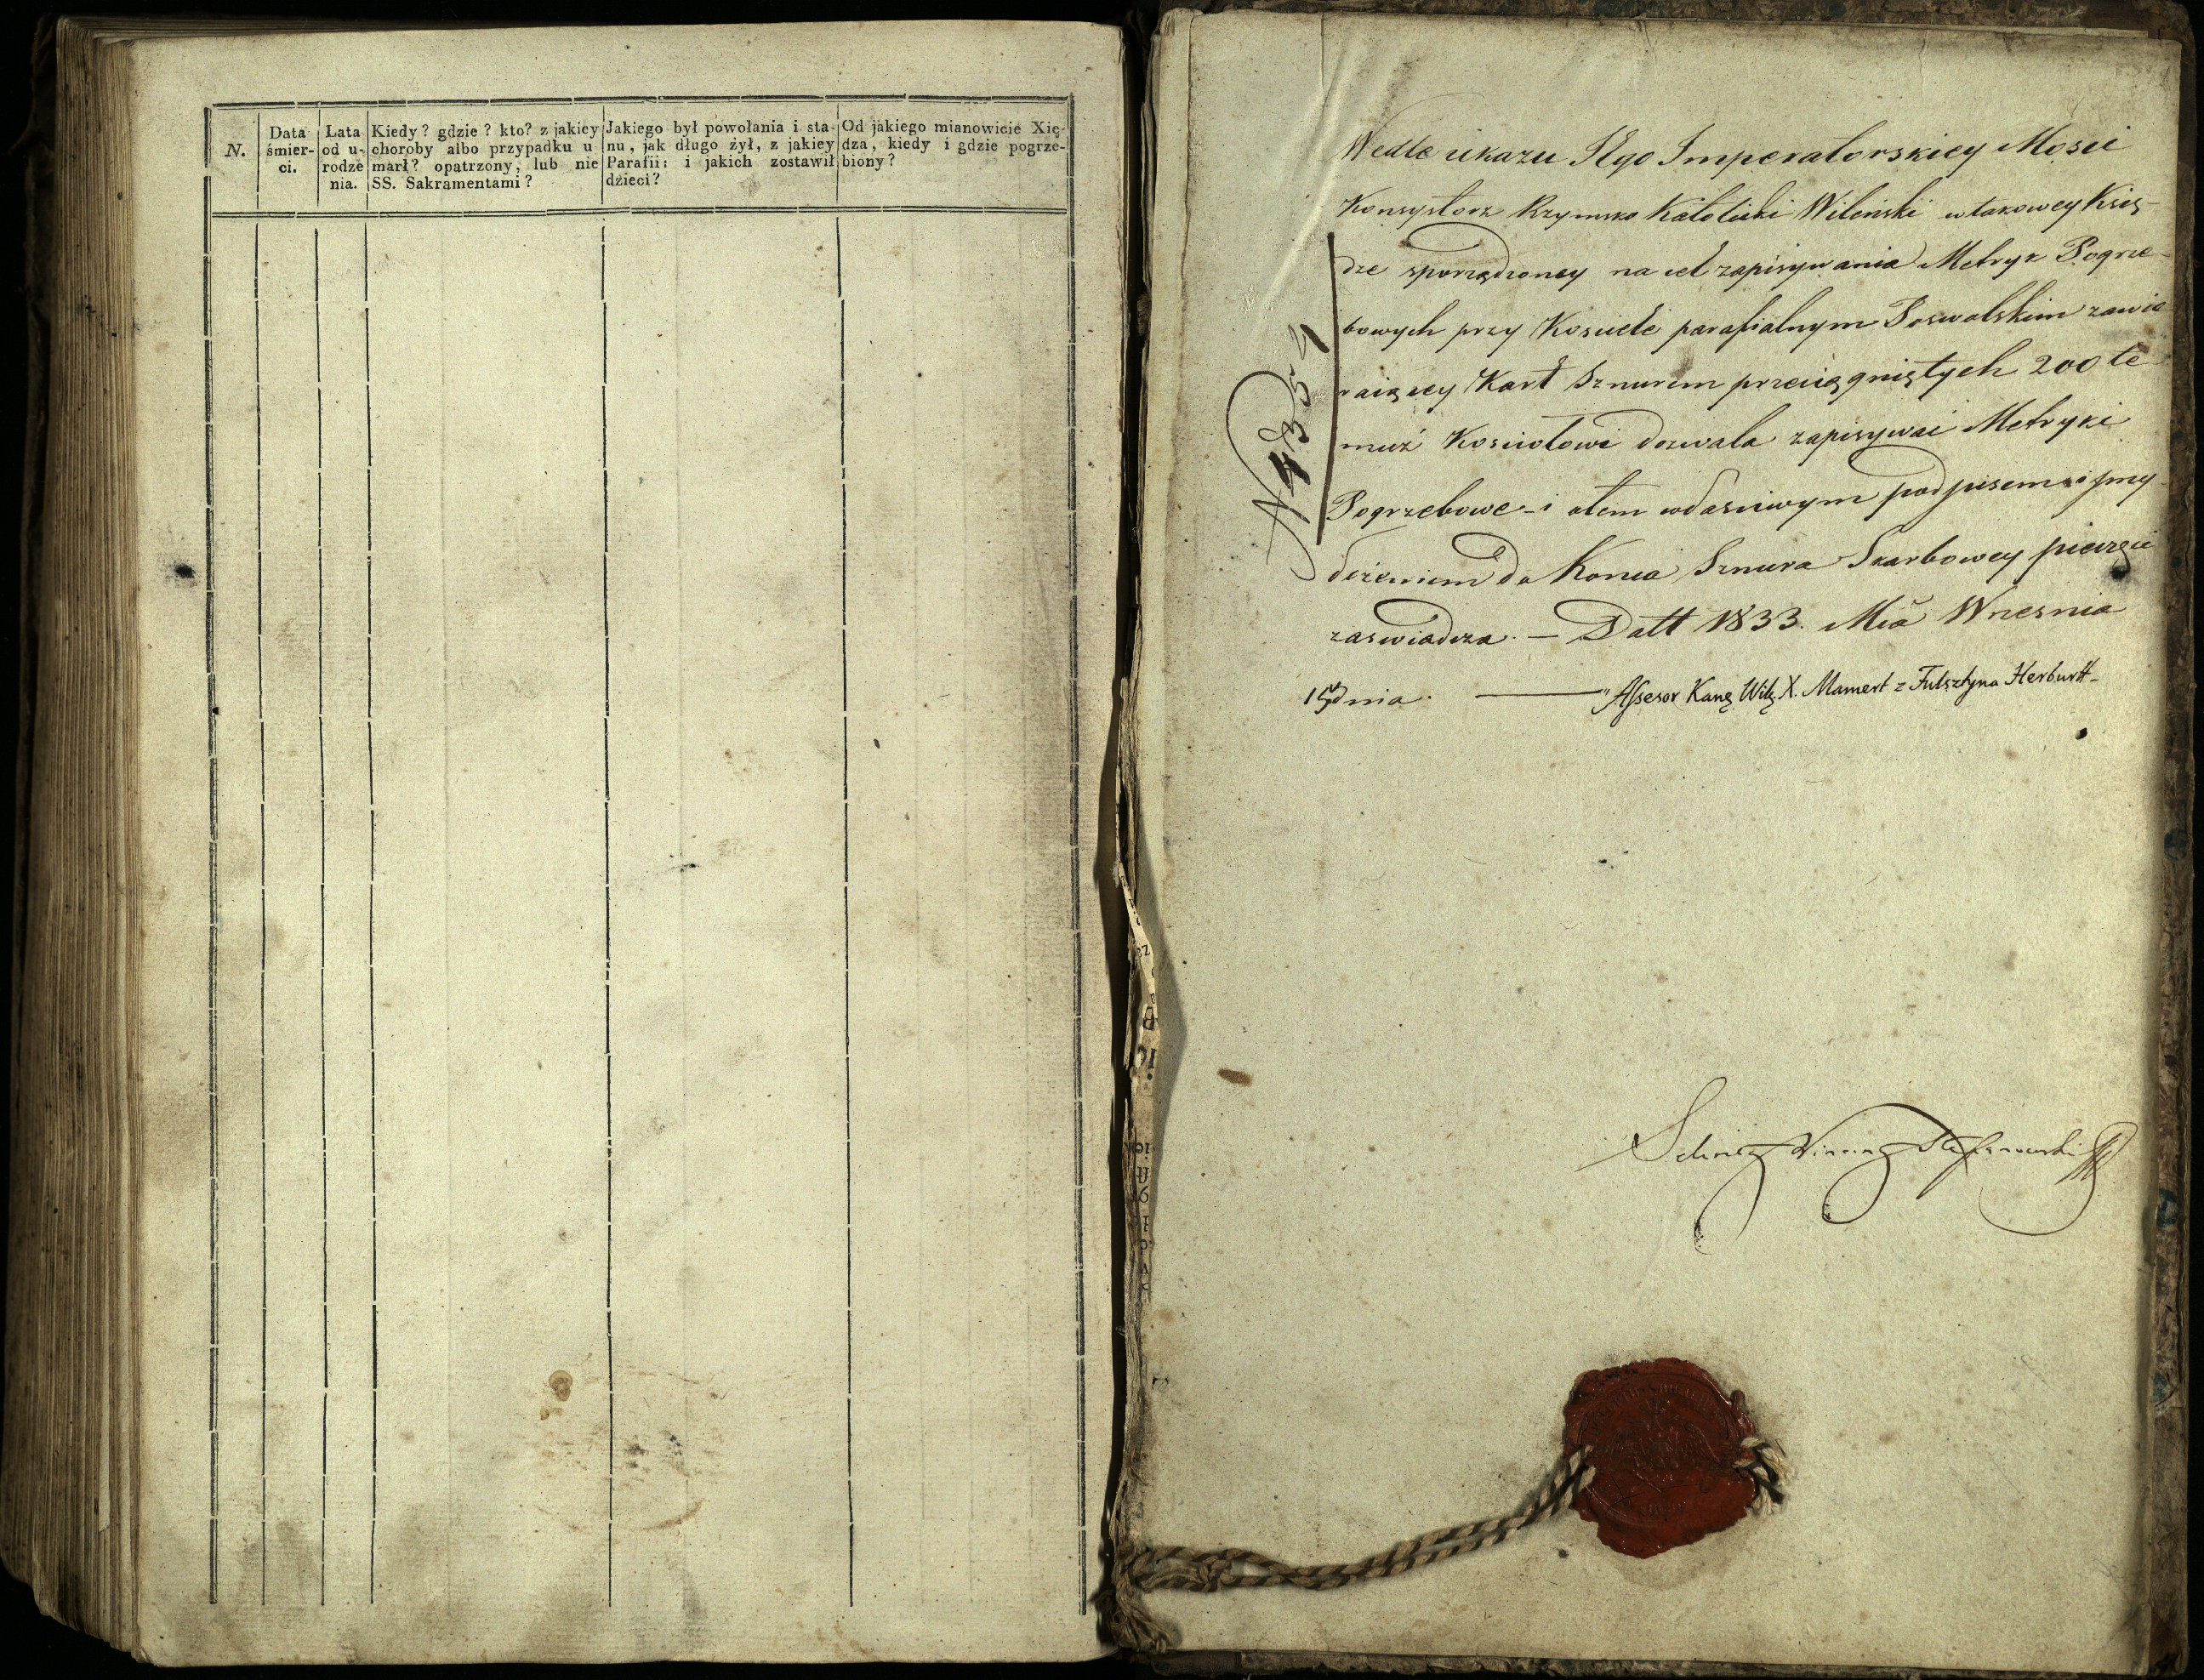 N.
Data śmier- ci.
Lata od u- rodze nia.
Kiedy? gdzie? kto? z jakiey
choroby albo przypadku u
marł? opatrzony, lub nie
SS. Sakramentami?
Jakiego był powołania i sta-
nu, jak długo żył, z jakiey
Parafii: i jakich zostawił
dzieci?
Od jakiego mianowicie Xię-
dza, kiedy i gdzie pogrze-
biony?
Wedle ukazu Jego Imperatorskiey Mosci
Konsystorz Rzymsko Katolicki Wileński w takowey Księ-
dze sporządzoney na cel zapisywania Metryk Pogrze-
bowych przy Kosciele parafialnym Poswolskim zawie
raiącey Kart Sznurem przeciągniętych 200 te
muż Kosciołowi dozwala zapisywać Metryki
Pogrzebowe i o tem własciwym podpisem i przy
łożeniem do Konca Sznura Skarbowey pieczęci
zaswiadcza. — Datt 1833. Mca Wrzesnia
dnia. — Assesor Kang Wilg X. Mamert z Fulsztyna Herburtt